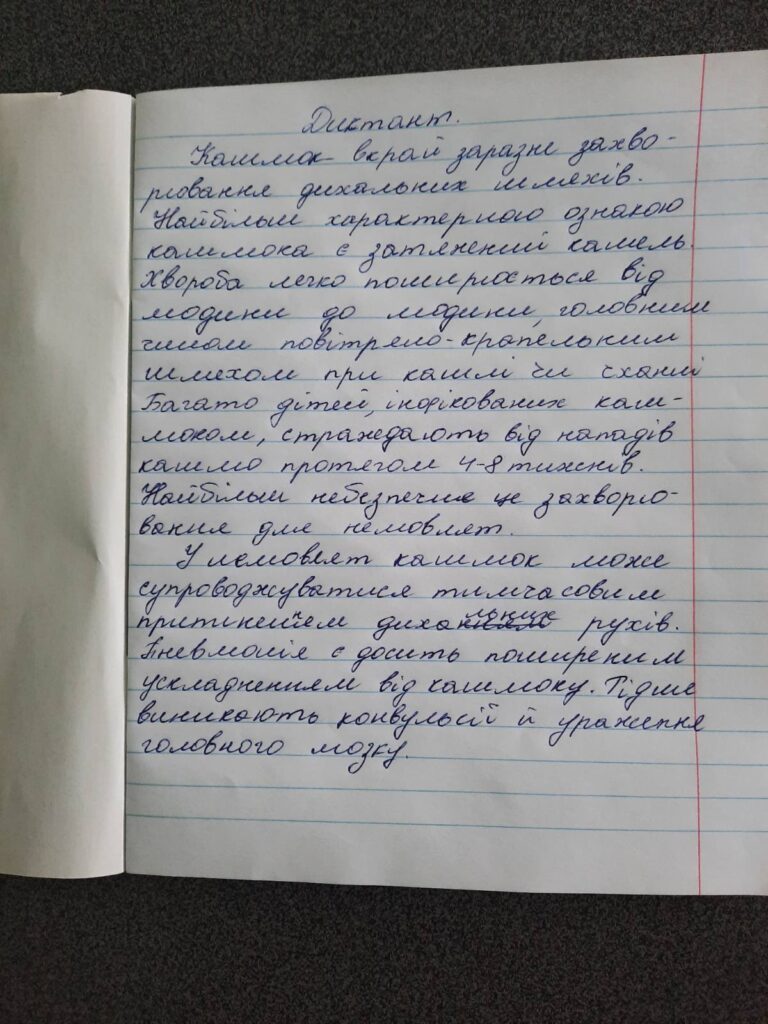 Диктант.
Кашлюк - вкрай заразне захво-
рювання дихальних шляхів.
Найбільш характерною ознакою
кашлюка є затяжний кашель.
Хвороба легко поширюється від
людини до людини, головним
чином повітряно-крапельним
шляхом при кашлі чи чханні
Багато дітей, інфікованих каш-
люком, страждають від нападів
кашлю протягом 4-8 тижнів.
Найбільш небезпечне це захворю-
вання для немовлят.
У немовлят кашлюк може
супроводжуватися тимчасовим
припиненнем дихальних рухів.
Пневмонія є досить поширеним
ускладненням від кашлюку. Рідше
виникають конвульсії й ураження
головного мозку.